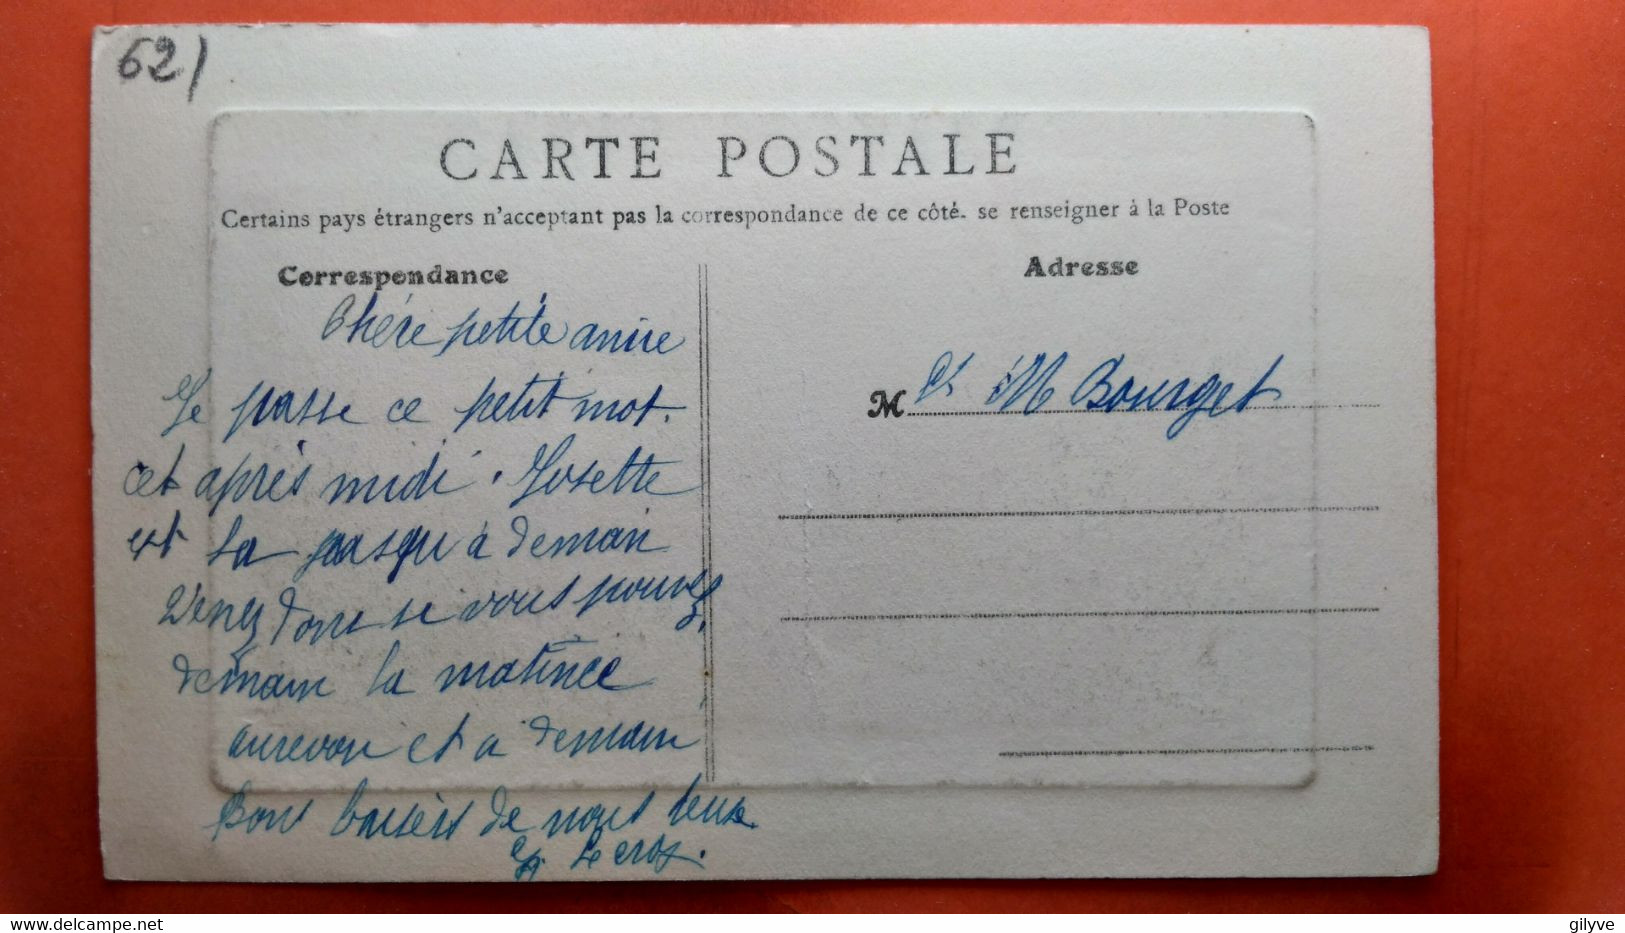 62)
CARTE POSTALE
Certains pays étrangers n'acceptant pas la correspondance de ce côté. se renseigner à la Poste
Correspondance
Adresse
Chére petite amie
Je passe ce petit mot.
cet après midi. Josette
est la jusqu'à demain
Venez donc si vous pouvez.
demain la matinée
aurevoir et a demain
Bons baisers de nous deux
Le cros.
M M Bourget
gilyve